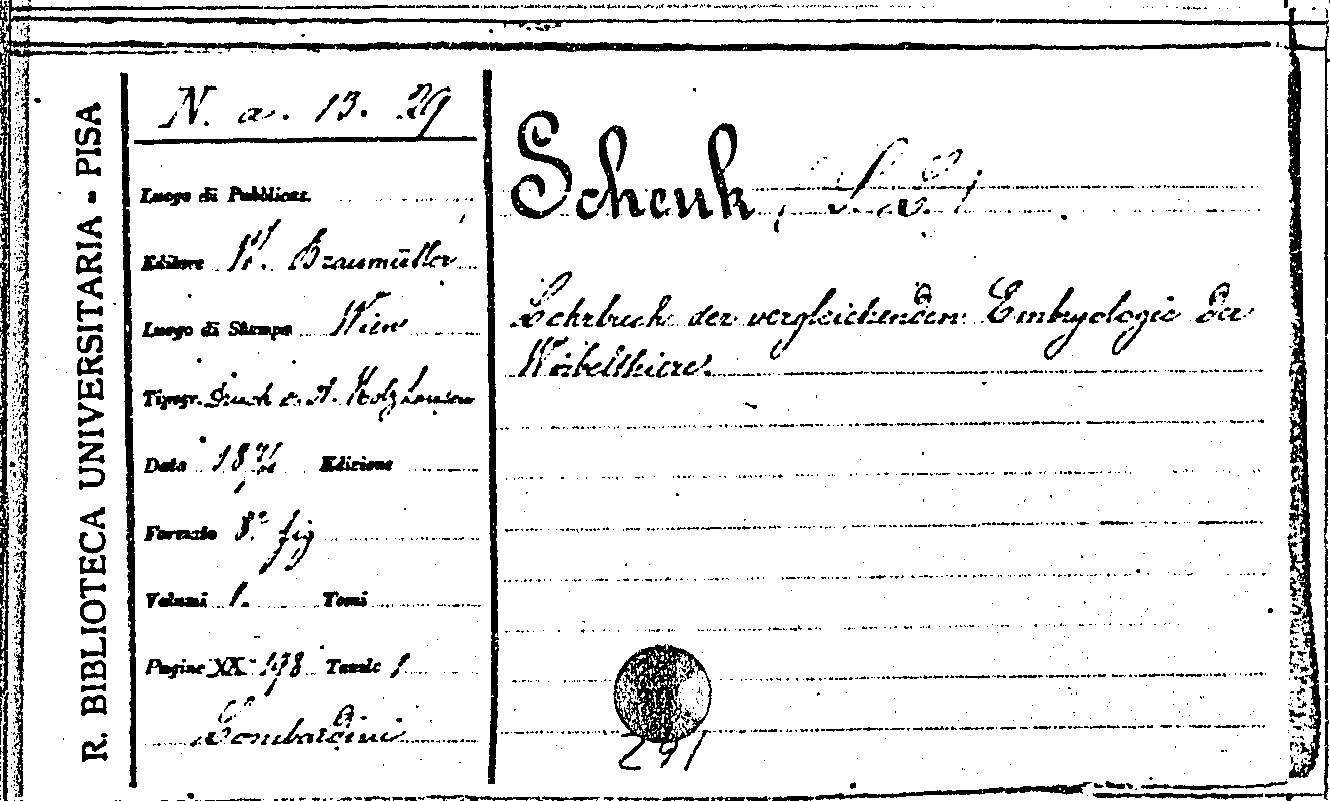 R. BIBLIOTECA UNIVERSITARIA - PISA
N. a. 13. 29
Luogo di Pubblicaz.
Editore W. Braumüller
Luogo di Stampa Wien
Tipogr. Druck v. A. Holzhausen
Data 1874 Edizione
Formato 8° fig
Volumi 1. Tomi
Pagine XX- 198 Tavole 1
Lombardini
Schenk, S. L.
Lehrbuch der vergleichenden Embryologie der
Wirbelthiere.
291